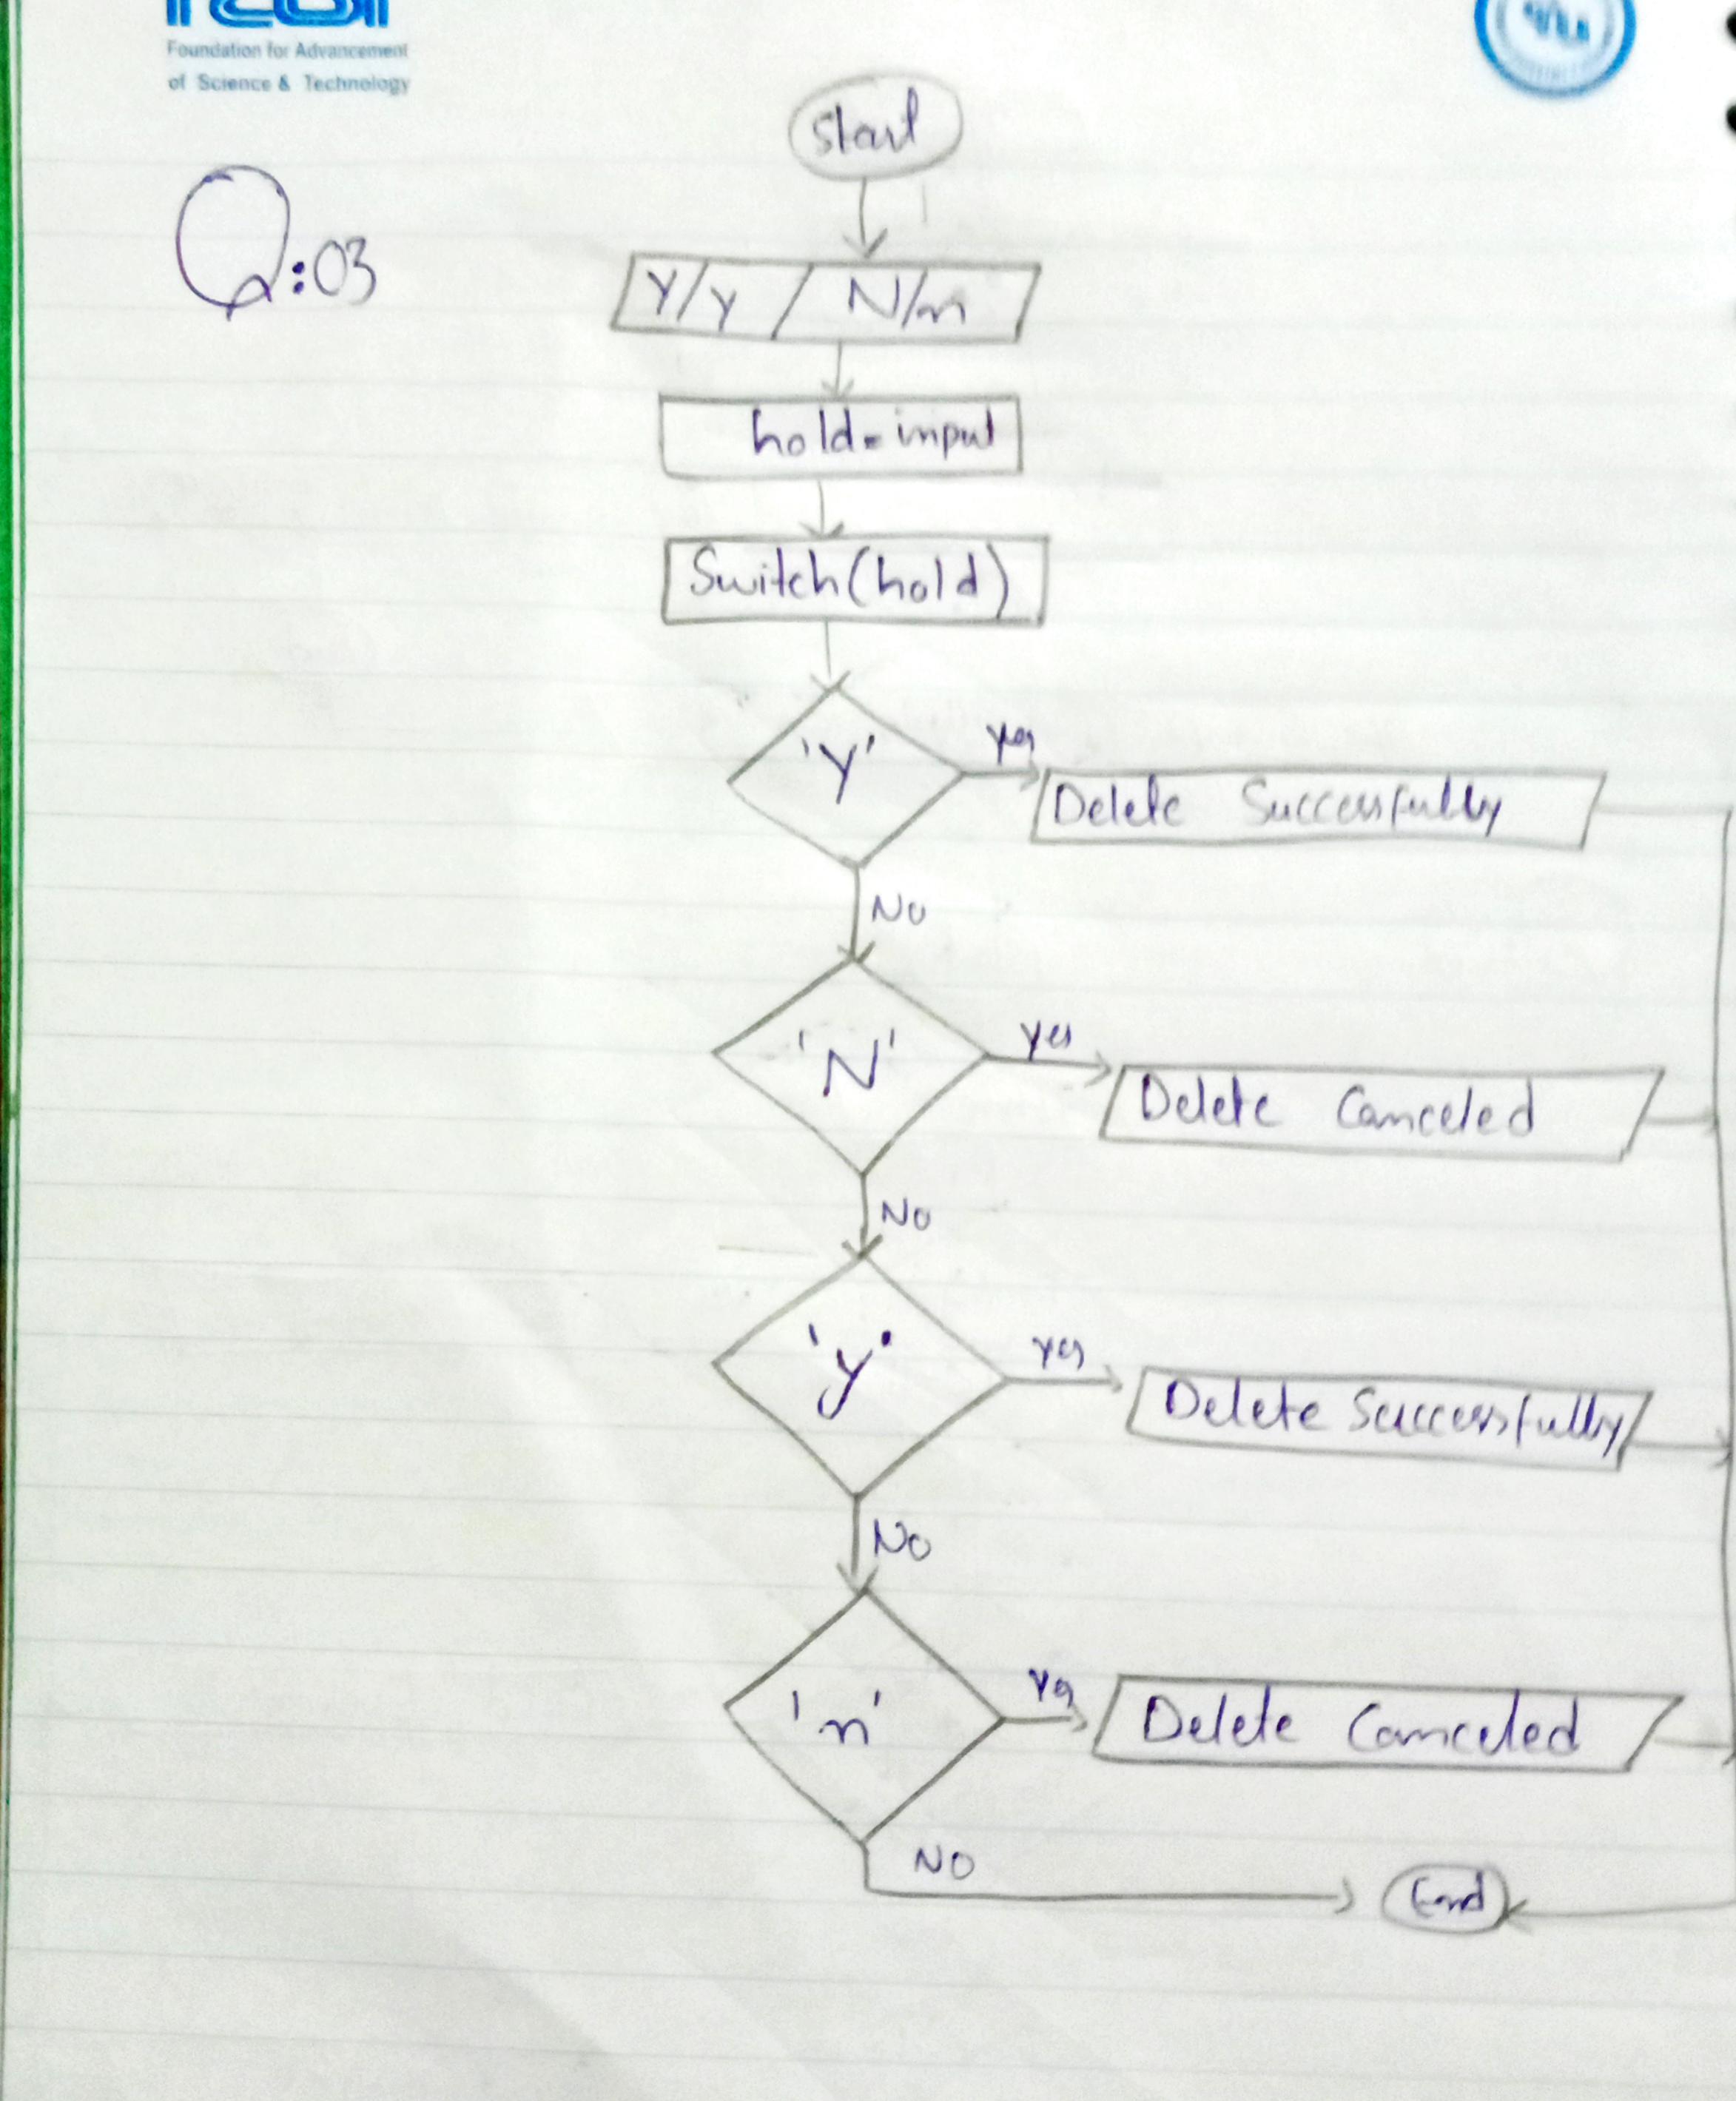 Foundation for Advancement
of Science & Technology
Start
Q:03
Y/y / N/n
hold=input
Switch(hold)
'Y'
yes
Delete Successfully
No
'N'
yes
Delete Canceled
No
'y'
yes
Delete Successfully
No
'n'
yes
Delete Canceled
NO
End